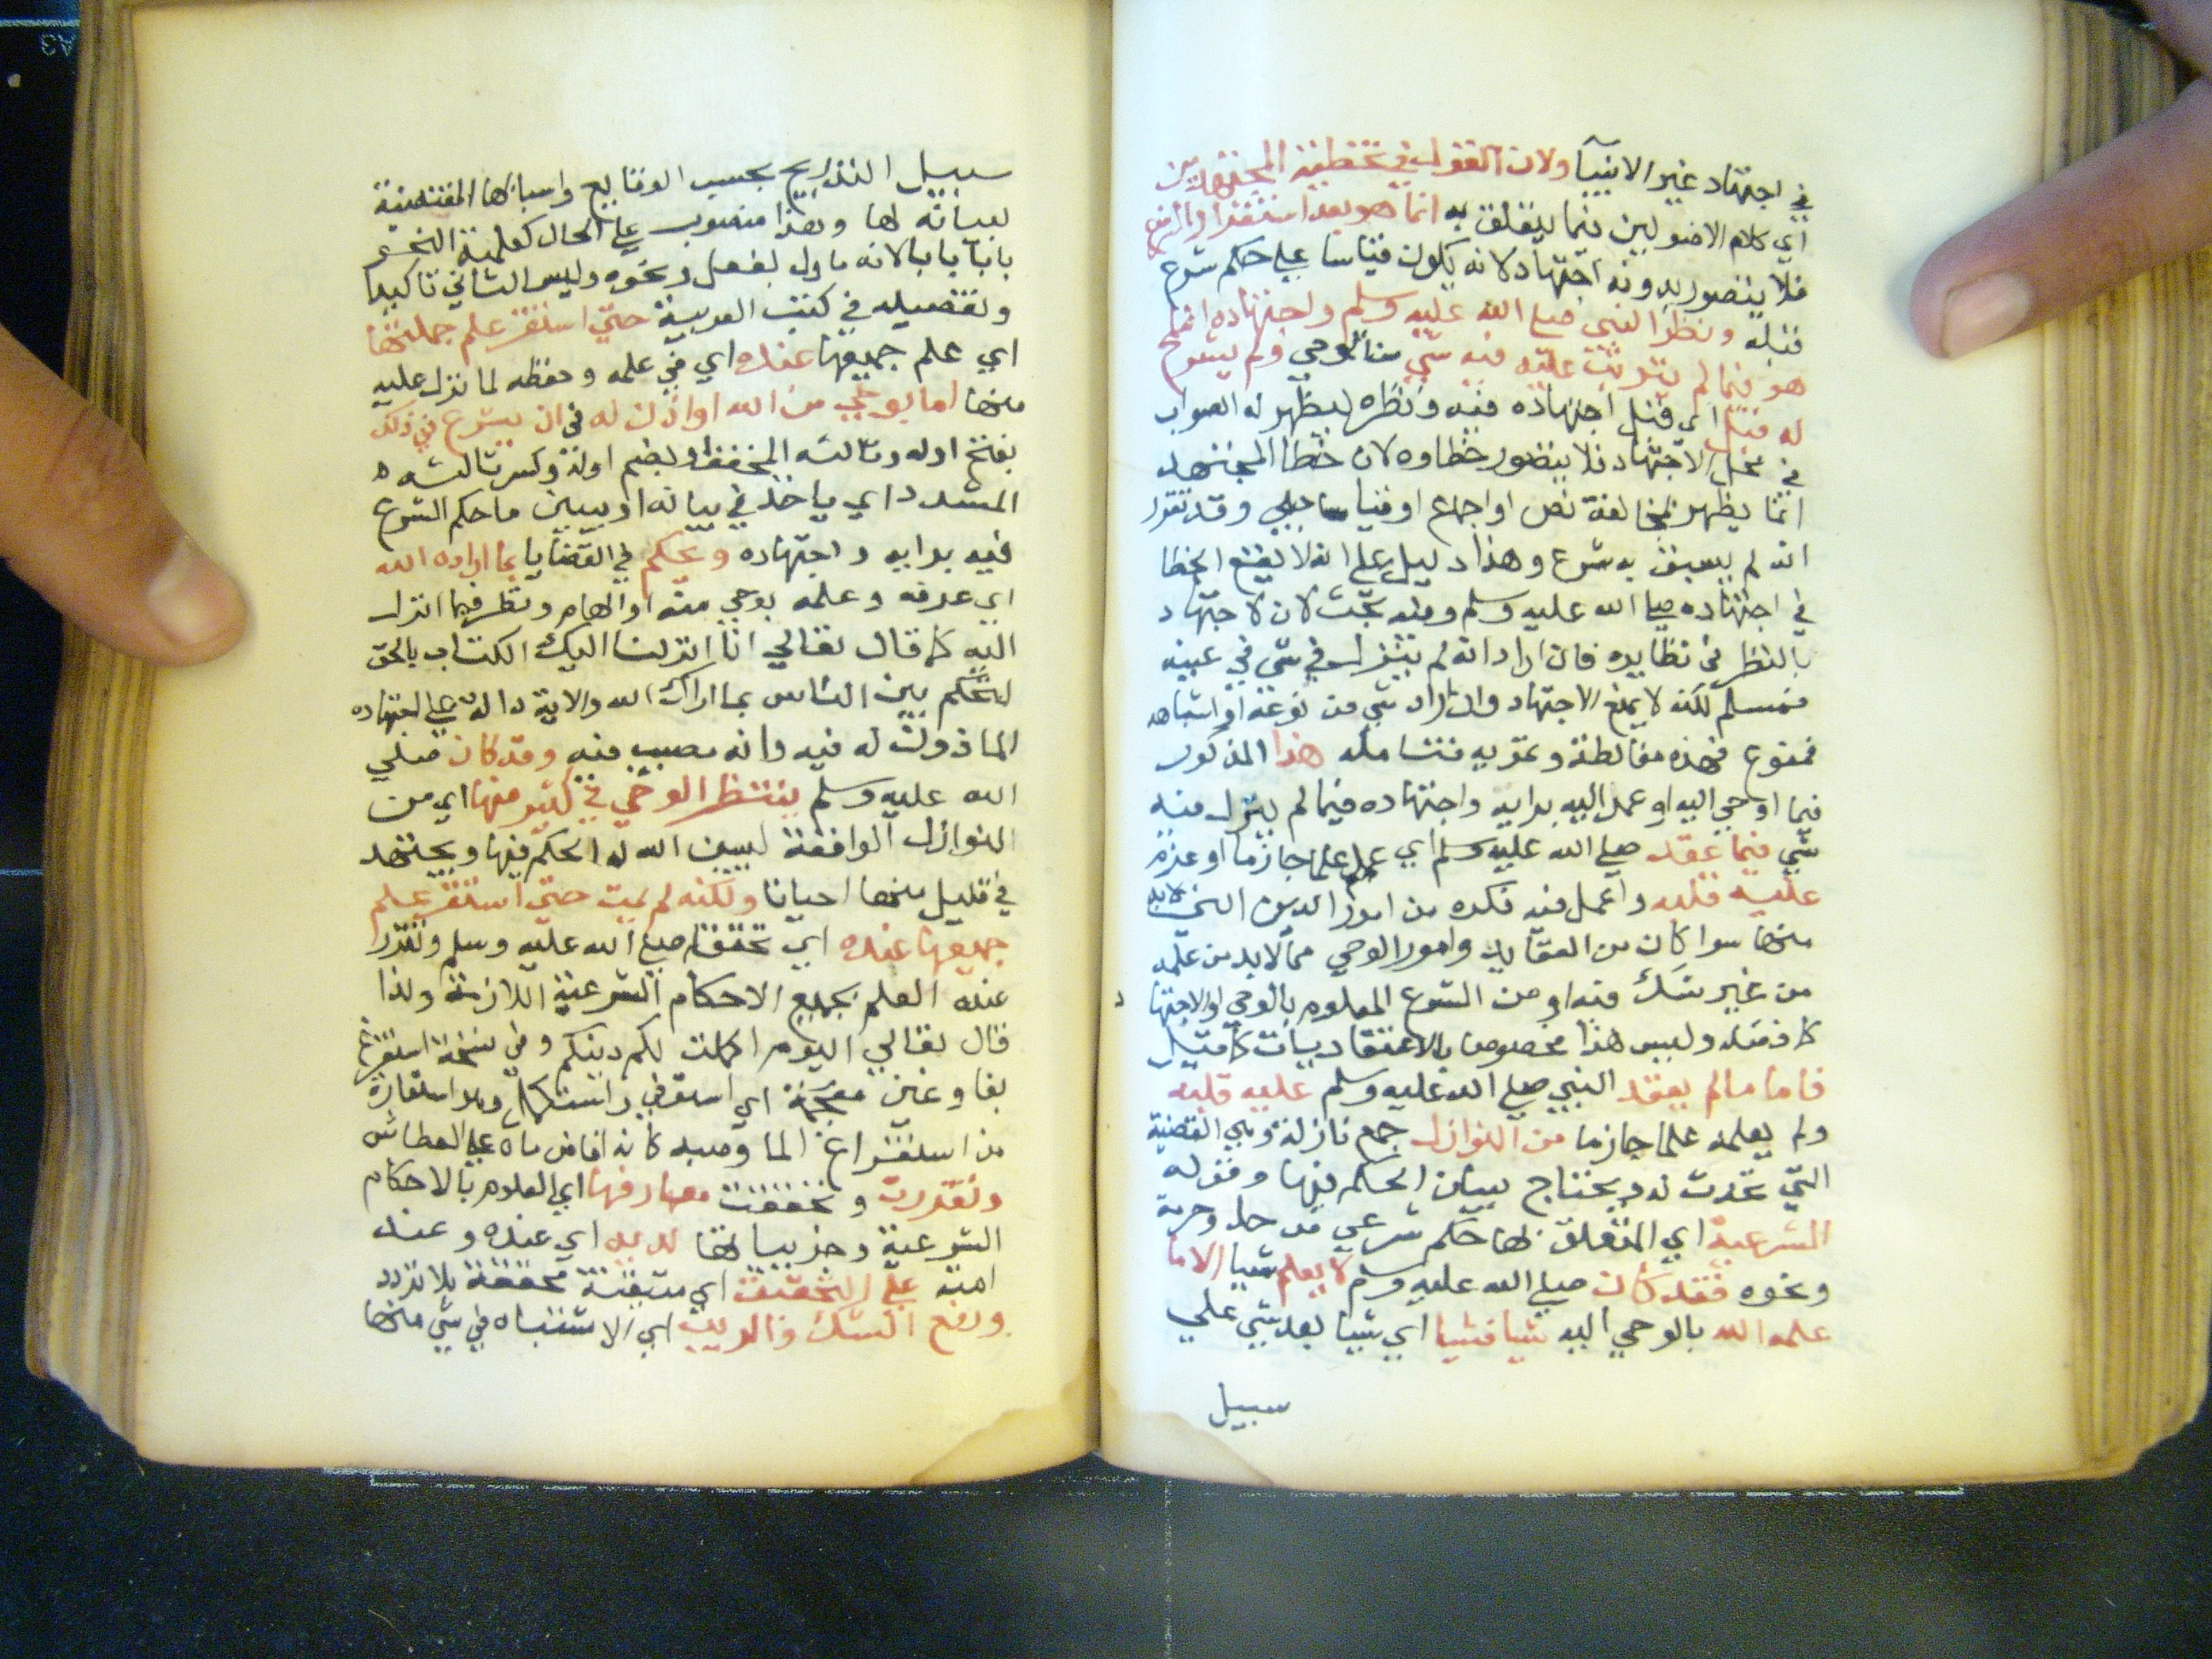 في اجتهاد غير الانبيآ ولان القول في تخطية المجتهدين
اي كلام الاصوليين فيما يتعلق به انما هو بعد استقرار الشرع
فلا يتصور بدونه اجتهاد لانه يكون قياسا علي حكم شرع
قبله ونظر النبي صلي الله عليه وسلم واجتهاده انما
هو فيما لم ينزل عليه فيه شي من الوحي ولم يشرع
له قبل اي قبل اجتهاده فيه ونظره ليظهر له الصواب
في محل الاجتهاد فلا يتصور خطاوه لان خطا المجتهد
انما يظهر لمخالفة نص او اجماع او قياس جلي وقد تقرر
انه لم يسبق به شرع وهذا دليل علي انه لا يقع الخطا
في اجتهاده صلي الله عليه وسلم وفيه بحث لان الاجتهاد
بالنظر في نظايره فان اراد انه لم ينزل في شي في عينه
فمسلم لكنه لا يمنع الاجتهاد وان اراد شي من نوعه او اشباهه
فممنوع فهذه مغالطة وتمويه فتامله هذا المذكور
فيما اوحي اليه او عمل اليه برايه واجتهاده فيما لم ينزل فيه
شي فيما عقد صلي الله عليه وسلم اي علم علما جازما او عزم
عليه قلبه واعمل فيه فكره من امور الدين التي لابد
منها سوا كان من العقايد وامور الوحي مما لابد من علمه
من غير شك فيه او من الشرع المعلوم بالوحي او الاجتهاد
كما قدمناه وليس هذا مخصوصا بالاعتقاديات كما قيل
فاما ما لم يعقد النبي صلي الله عليه وسلم عليه قلبه
ولم يعلمه علما جازما من النوازل جمع نازلة وهي القضية
التي تحدث له ويحتاج لبيان الحكم فيها وقوله
الشرعية اي المتعلق بها حكم شرعي من حل وحرمة
ونحوه فقد كان صلي الله عليه وسلم لا يعلم شيا الا ما
علمه الله بالوحي اليه شيا فشيا اي شيا بعد شي علي
سبيل
سبيل التدريج بحسب الوقايع واسبابها المقتضية
لبيانه لها وهذا منصوب علي الحال كعلمته النحو
بابا بابا لانه ماول بفعل ونحوه وليس الثاني تاكيدا
وتفصيله في كتب العربية حتي استقر علم جملتها
اي علم جميعها عنده اي في علمه وحفظه لما نزل عليه
منها اما بوحي من الله او اذن له في ان يشرع في ذلك
بفتح اوله وثالثه المخفف او بضم اوله وكسر ثالثه
المشدد اي ياخذ في بيانه او يبين ما حكم الشرع
فيه برايه واجتهاده ويحكم في القضايا بما اراه الله
اي عرفه وعلمه بوحي منه او الهام ونظر فيما انزل
اليه كما قال تعالي انا انزلنا اليك الكتاب بالحق
لتحكم بين الناس بما اراك الله والاية دالة علي اجتهاده
الماذون له فيه وانه مصيب فيه وقد كان صلي
الله عليه وسلم ينتظر الوحي في كثير منها اي من
النوازل الواقعة ليبين الله له الحكم فيها ويجتهد
في قليل منها احيانا ولكنه لم يمت حتي استقر علم
جميعها عنده اي تحقق صلي الله عليه وسلم وتقرر
عنده العلم بجميع الاحكام الشرعية اللازمة ولذا
قال تعالي اليوم اكملت لكم دينكم وفي نسخة استفرغ
بفا وغين معجمة اي استوفي واستكمل وهو استعارة
من استفراغ الما وصبه كانه افاض ماه علي العطاش
وتقررت وتحققت معارفها اي العلوم بالاحكام
الشرعية وجزيياتها لديه اي عنده وعند
امته علي التحقيق اي متيقنة محققة بلا تردد
ورفع الشك والريب اي الاشتباه في شي منها